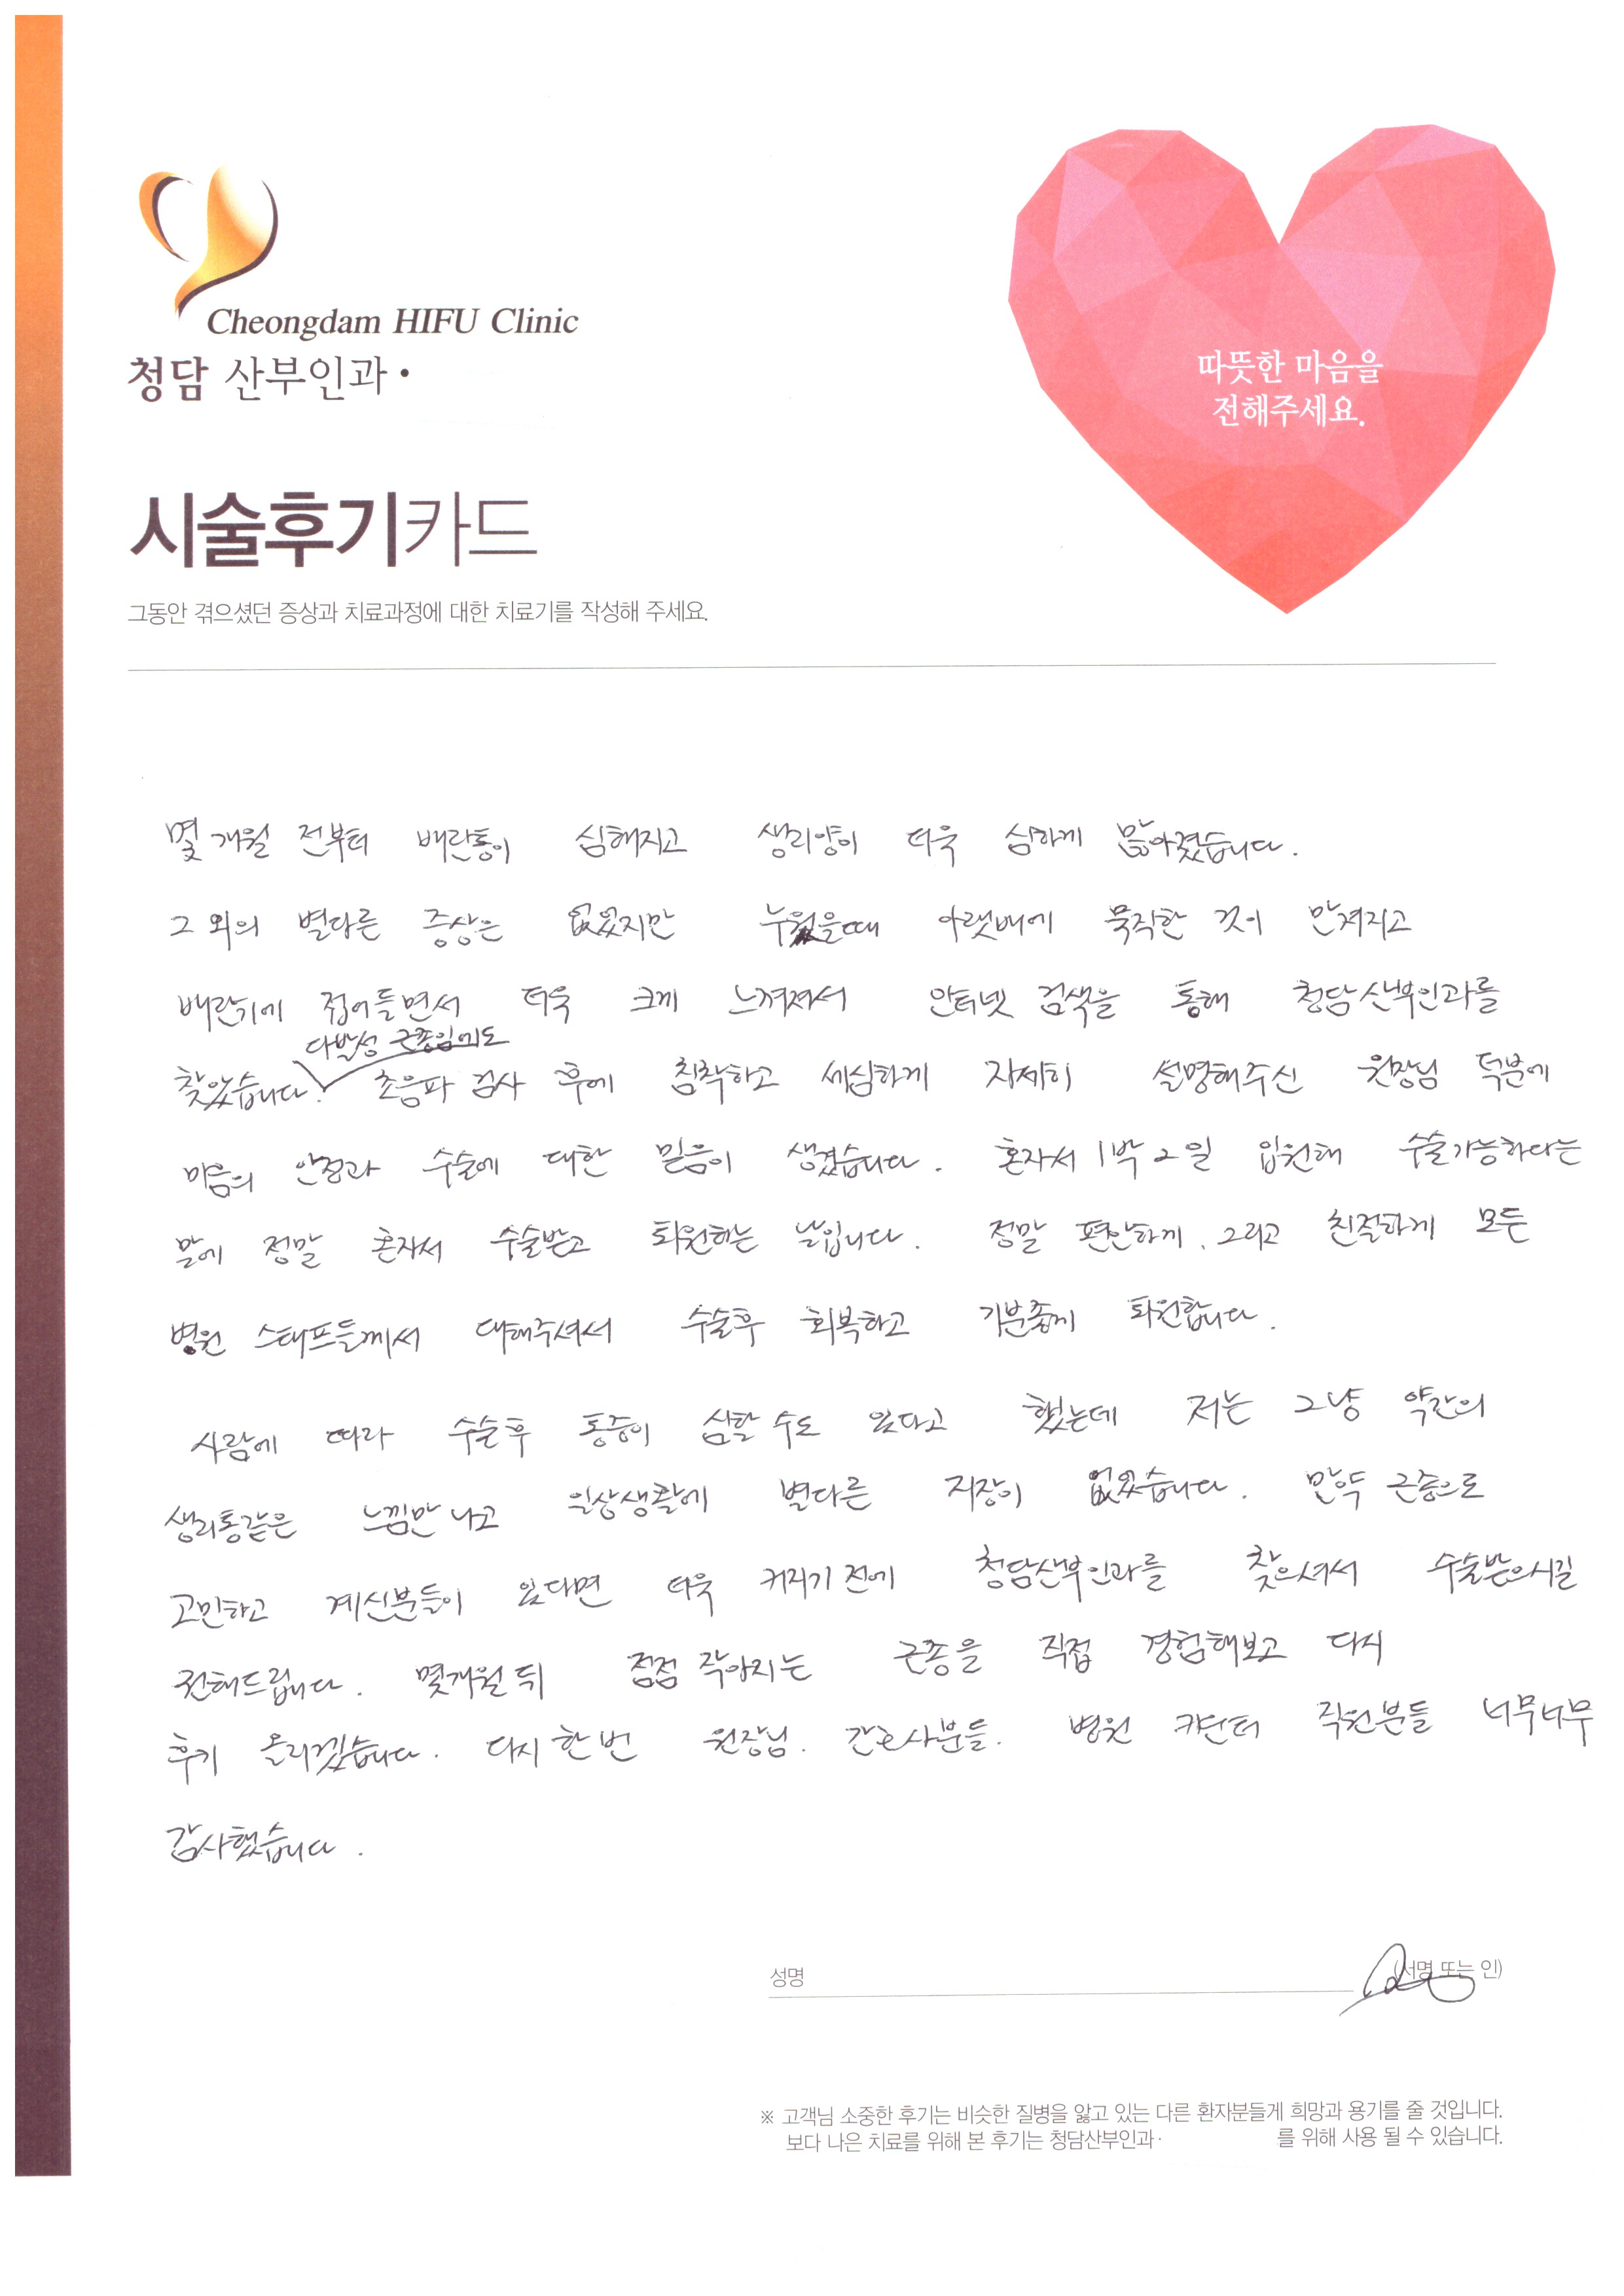 Cheongdam HIFU Clinic
청담 산부인과·
따뜻한 마음을
전해주세요.
시술후기카드
그동안 겪으셨던 증상과 치료과정에 대한 치료기를 작성해 주세요.
몇 개월 전부터 배란통이 심해지고 생리양이 더욱 심하게 많아졌습니다.
그 외의 별다른 증상은 없었지만 누웠을때 아랫배에 묵직한 것이 만져지고
배란기에 접어들면서 더욱 크게 느껴져서 인터넷 검색을 통해 청담산부인과를
다발성 근종임에도
찾았습니다. 초음파 검사 후에 침착하고 세심하게 자세히 설명해주신 원장님 덕분에
마음의 안정과 수술에 대한 믿음이 생겼습니다. 혼자서 1박 2일 입원해 수술가능하다는
말에 정말 혼자서 수술받고 퇴원하는 날입니다. 정말 편안하게, 그리고 친절하게 모든
병원 스태프들께서 대해주셔서 수술후 회복하고 기분좋게 퇴원합니다.
사람에 따라 수술후 통증이 심할 수도 있다고 했는데 저는 그냥 약간의
생리통같은 느낌만 나고 일상생활에 별다른 지장이 없었습니다. 만약 근종으로
고민하고 계신분들이 있다면 더욱 커지기 전에 청담산부인과를 찾으셔서 수술받으시길
권해드립니다. 몇개월 뒤 점점 작아지는 근종을 직접 경험해보고 다시
후기 올리겠습니다. 다시 한번 원장님. 간호사분들. 병원 카운터 직원분들 너무너무
감사했습니다.
성명 (서명 또는 인)
※ 고객님 소중한 후기는 비슷한 질병을 앓고 있는 다른 환자분들게 희망과 용기를 줄 것입니다.
보다 나은 치료를 위해 본 후기는 청담산부인과· 를 위해 사용 될 수 있습니다.